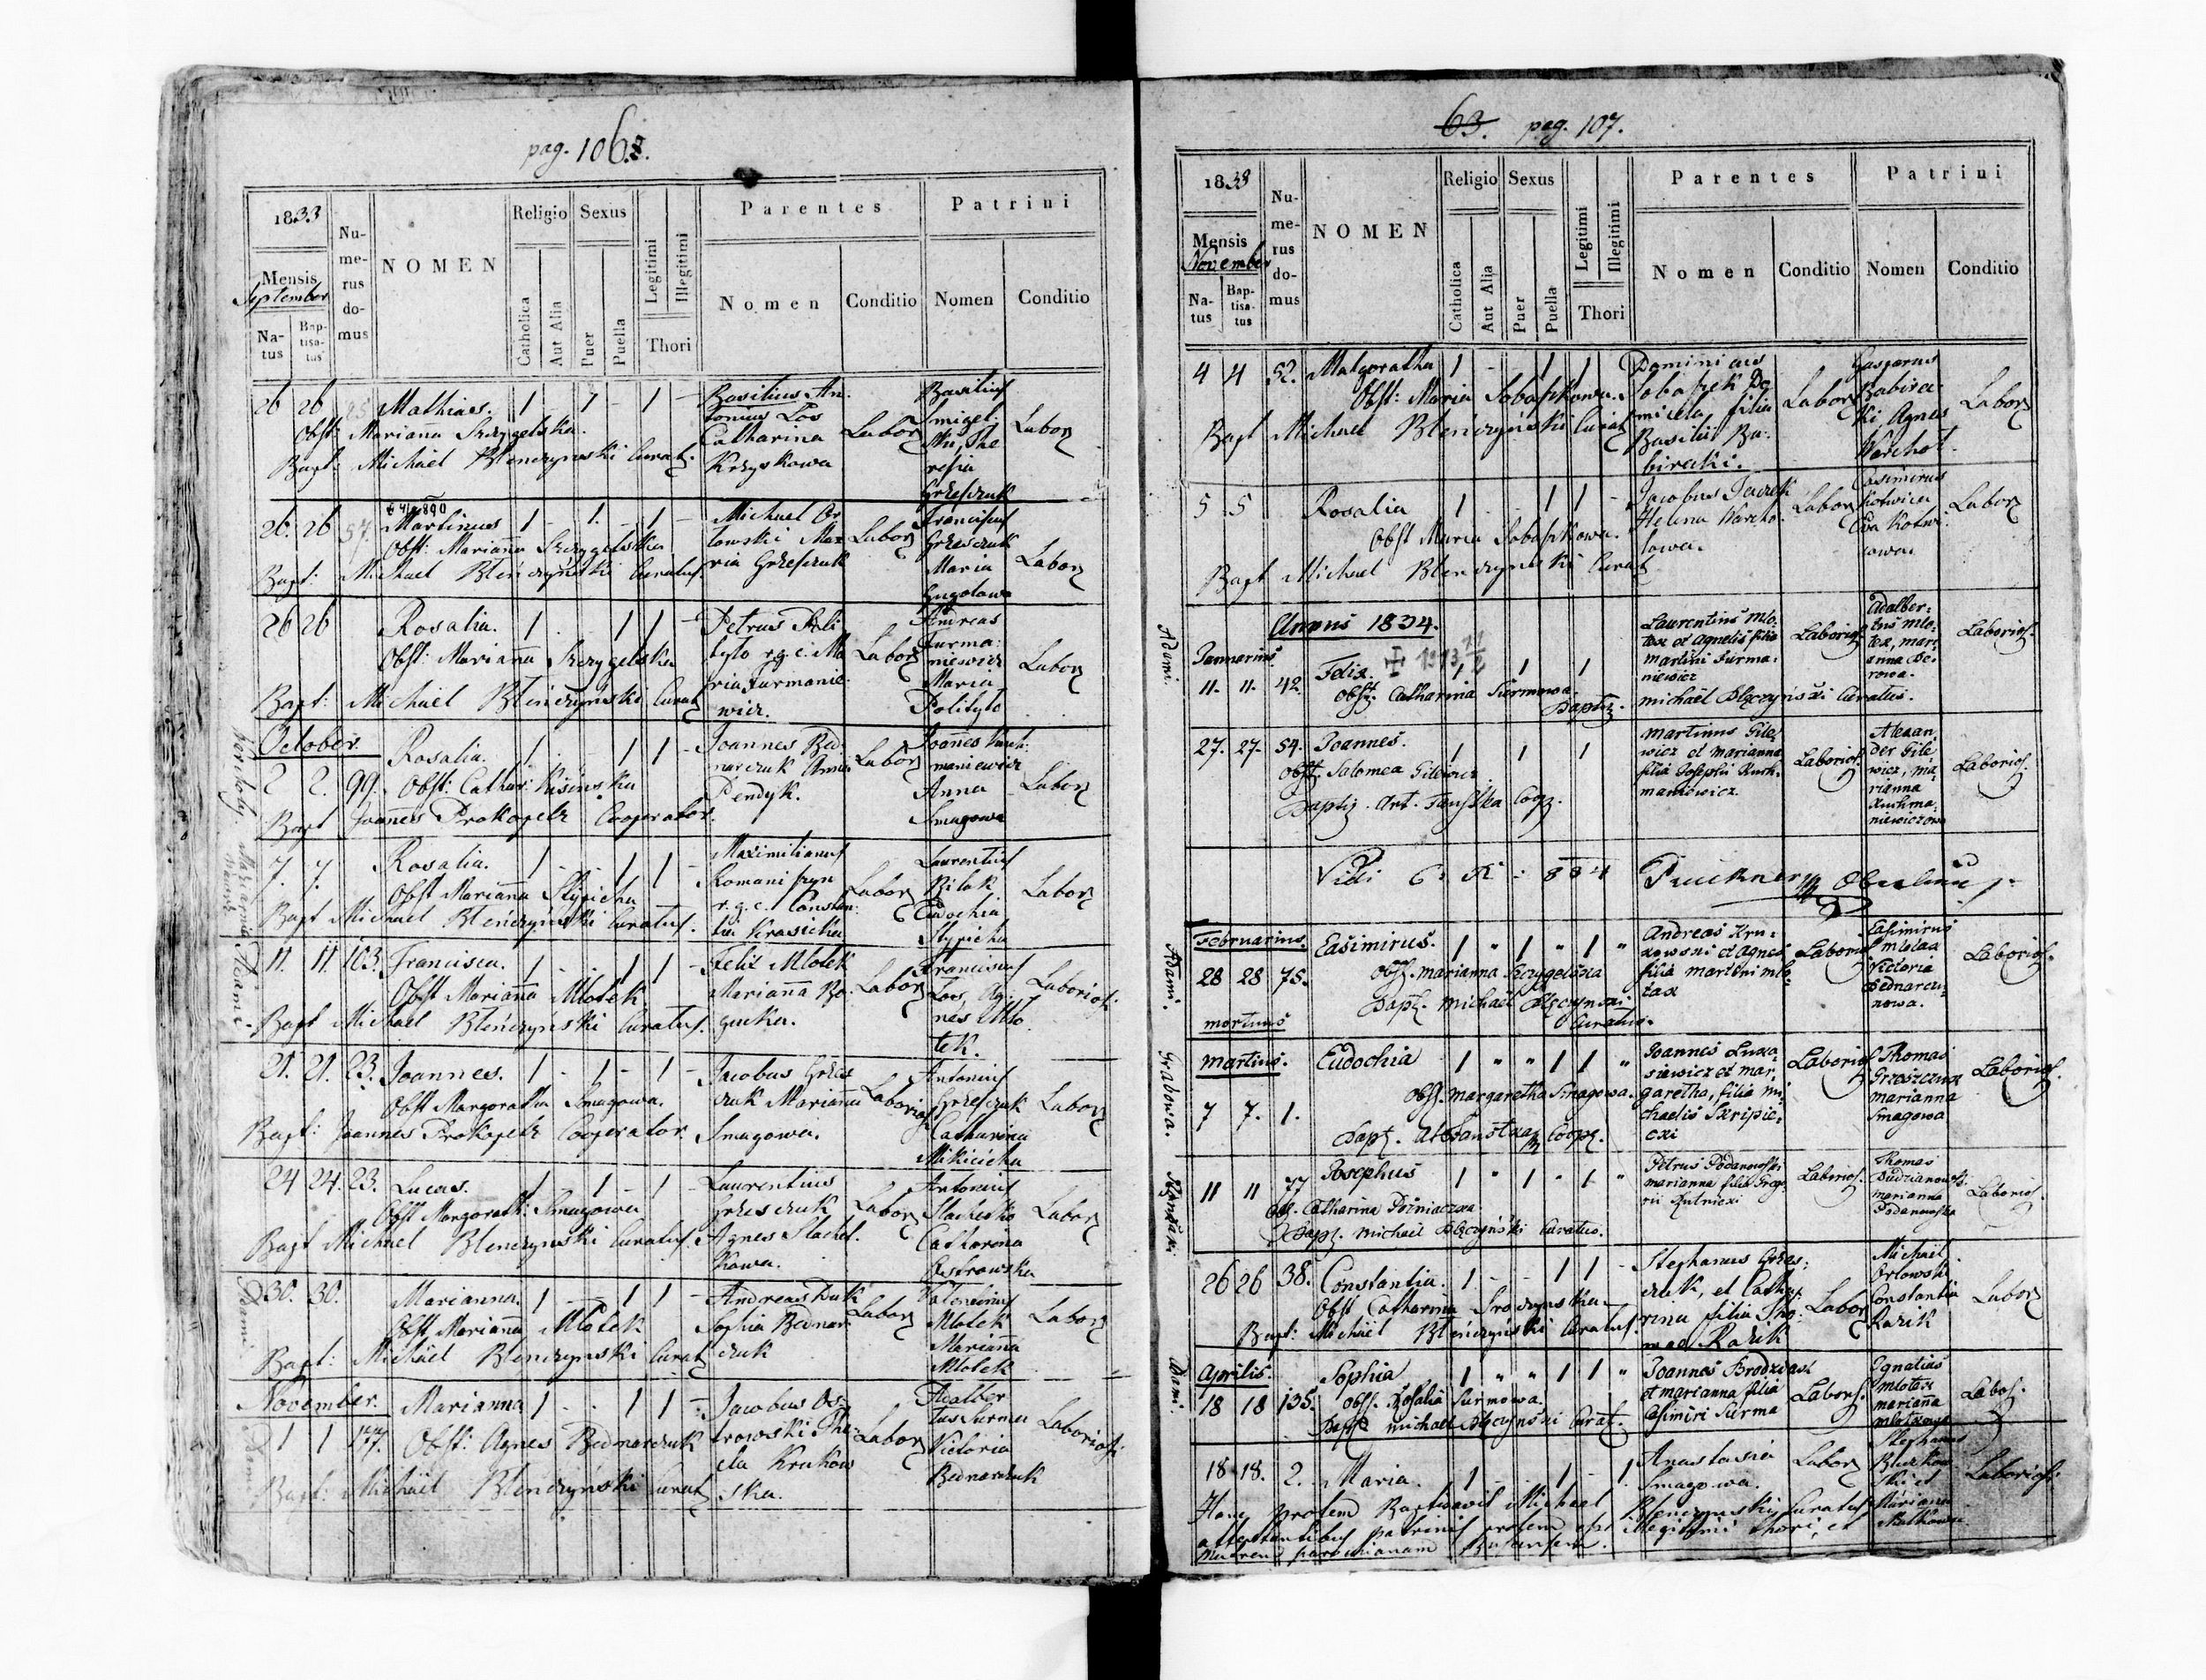 pag. 106.
1833
Mensis
September
Na-
tus
Bap-
tisa-
tus
Nu-
me-
rus
do-
mus
NOMEN
Religio
Catholica
Aut Alia
Sexus
Puer
Puella
Legitimi
Illegitimi
Thori
Parentes
Nomen
Conditio
Patrini
Nomen
Conditio
26 26 Mathias. 1 - 1 - 1 -
Obst: Marianna Szczygelska.
Bapt: Michael Blenczynski Curat.
Basilius An-
tonius Los
Catharina
Krzyskowa
Labor
Basilius
Smigel-
ski, The
resia
Grzesczuk
Labor
26. 26 57. Martinus 1 - 1. - 1 -
Obst: Marianna Szczygelska
Bapt: Michael Blenczynski Curatus.
Michael Or
lowski Ma
ria Grzesczuk
Labor
Franciscus
Grzesczuk
Maria
Gugolowa
Labor
26 26 Rosalia. 1 . 1 1 -
Obst: Marianna Szczygelska
Bapt: Michael Blenczynski Curat
Petrus Poli
tylo r.g.c. Ma
ria Furmanie
wicz.
Labor
Andreas
Furma-
niewicz
Maria
Politylo
Labor
October.
2 2. 99. Rosalia. 1 . 1 1 -
Obst: Cathar. Kisinska
Bapt Joannes Prokopetz Cooperator.
Joannes Bed-
narczuk Anna
Pendyk.
Labor
Joannes
maniewicz
Anna
Smagowa
Labor
7. 7. Rosalia. 1 - . 1 1 -
Obst Marianna Stypicha
Bapt Michael Blenczynski Curatus.
Maximilianus
Romaniszyn
r.g.c. Constan-
tia Krasicka
Labor
Laurentius
Bilak
Eudochia
Stypicha
Labor
11. 11. 103. Francisca. 1 - . 1 1 -
Obst Marianna Mlotek.
Bapt Michael Blenczynski Curatus.
Felix Mlotek
Marianna Ro-
gucka.
Labor
Franciscus
Los, Ag-
nes Mlo
tek.
Laborios.
21. 21. 23. Joannes. 1 - 1 - 1 -
Obst Margoratha Smagowa.
Bapt: Joannes Prokopetz Cooperator.
Jacobus Grzes
czuk Marianna
Smagowa.
Laborios
Antonius
Grzesczuk
Catharina
Mikicicha
Labor
24 24. 23. Lucas. 1 - 1 - 1 -
Obst Margorath: Smagowa
Bapt Michael Blenczynski Curatus.
Laurentius
Grzesczuk
Agnes Stachel-
kowa.
Labor
Antonius
Stachelko
Catharina
Ostrowska
Labor
30. 30. Marianna. 1 - - 1 1 -
Obst Marianna Mlotek
Bapt: Michael Blenczynski Curat
Andreas Duk
Sophia Bednar-
czuk
Labor
Valentinus
Mlotek
Marianna
Mlotek
Labor
November.
1 1 147. Marianna 1 - . 1 1 -
Obst: Agnes Bednarczuk
Bapt: Michael Blenczynski Curat
Jacobus Os-
trowski The-
cla Krukow
ska.
Labor
Adalber
tus Surma
Victoria
Bednarczuk
Laborios.
63. pag. 107.
1833
Mensis
November
Na-
tus
Bap-
tisa-
tus
Nu-
me-
rus
do-
mus
NOMEN
Religio
Catholica
Aut Alia
Sexus
Puer
Puella
Legitimi
Illegitimi
Thori
Parentes
Nomen
Conditio
Patrini
Nomen
Conditio
4 4 52. Malgoratha 1 - . 1 1
Obst: Maria Sobaszkowa.
Bapt Michael Blenczynski Curat
Dominicus
Sobaszek Do
micela filia
Basilii Ba-
biracki.
Labor
Gasparus
Babirac-
ki, Agnes
Warchol.
Labor
5 5 Rosalia 1 - . 1 1 -
Obst Maria Sobaszkowa.
Bapt Michael Blenczynski Curat
Jacobus Jaczek
Helena Warcho-
lowa.
Labor
Casimirus
Kotwica
Eva Kotwi-
cowa.
Labor
Adami.
Annus 1834.
Januarius
11. 11. 42. Felix. 1 1 1
Obst. Catharina Surmowa.
Baptiz. Michaël Blęczyński Curatus.
Laurentius Mlo-
tek et Agnetis filia
Martini Furma-
niewicz
Laborios.
Adalber-
tus Mlo-
tek, Mari-
anna Se-
rowa.
Laborios.
27. 27. 54. Joannes. 1 1 1
Obst. Salomea Gilewicz
Baptiz. Ant. Fanstka Coop.
Martinus Gile-
wicz et Marianna
filia Josephi Kuch-
maniewicz.
Laborios.
Alexan
der Gile
wicz, Ma-
rianna
Kuchma-
niewiczowa
Laborios.
Vidi 834
Adami.
Februarius.
28 28 75. Casimirus. 1 " 1 " 1 "
Obst. Marianna Szczygelska
Bapt. Michaël Blęczynski
Curatus.
mortuus
Andreas Kru-
kowski et Agnes
filia Martini Mlo-
tek
Laborios
Casimirus
Mlotek
Victoria
Bednarczu-
kowa.
Laborios.
Grabowa.
Martius.
7 7. 1. Eudochia 1 " " 1 1 "
Obst. Margaretha Smagowa.
Bapt. Ant Fanstka Coop.
Joannes Luka-
siewicz et Mar-
garetha, filia Mi-
chaelis Skripic-
cki
Laborios
Thomas
Grzeszczuk
Marianna
Smagowa
Laborios.
11 11 77 Josephus 1 " 1 " 1 "
Obst. Catharina Pozniaczka
Bapt. Michaël Blęczyński Curatus.
Petrus Podanowski
Marianna filia Grego-
rii Zutnicki
Laborios.
Thomas
Budzianowski
Marianna
Podanowska
Laborios.
26 26 38. Constantia. 1 - - 1 1 -
Obst Catharina
Bapt: Michaël Blenczyński Curatus.
Stephanus Grzes-
czuk, et Catha-
rina filia Tho-
mae Razik
Labor
Michaël
Orlowski
Constantia
Razik
Labor
Adami.
Aprilis.
18 18 135. Sophia 1 " " 1 1 "
Obst. Rosalia Surmowa.
Bapt. Michael Blęczyński Curat.
Joannes Brodziak
et Marianna filia
Casimiri Surma
Labors.
Ignatius
Mlotek
Marianna
Mlotkowa
Labos.
18. 18. 2. Maria. 1 - - 1 - 1.
Anastasia
Smagowa.
Labor
Stephanus
Buczkow-
ski et
Marianna
Laborios.
Hanc prolem Baptisavit Michael Blenczynski Curatus
attestantibus patrinis prolem esse illegitimi thori, et
Matrem parochianam